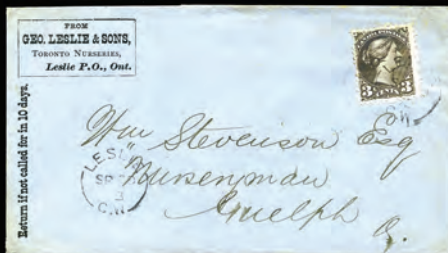 FROM
GEO. LESLIE & SONS,
TORONTO NURSERIES,
Leslie P.O., Ont.
Return if not called for in 10 days.
3 CENTS 3
Wm Stevenson Esq
Nurseryman
Guelph
O.
LESLIE
SP
3
C.W